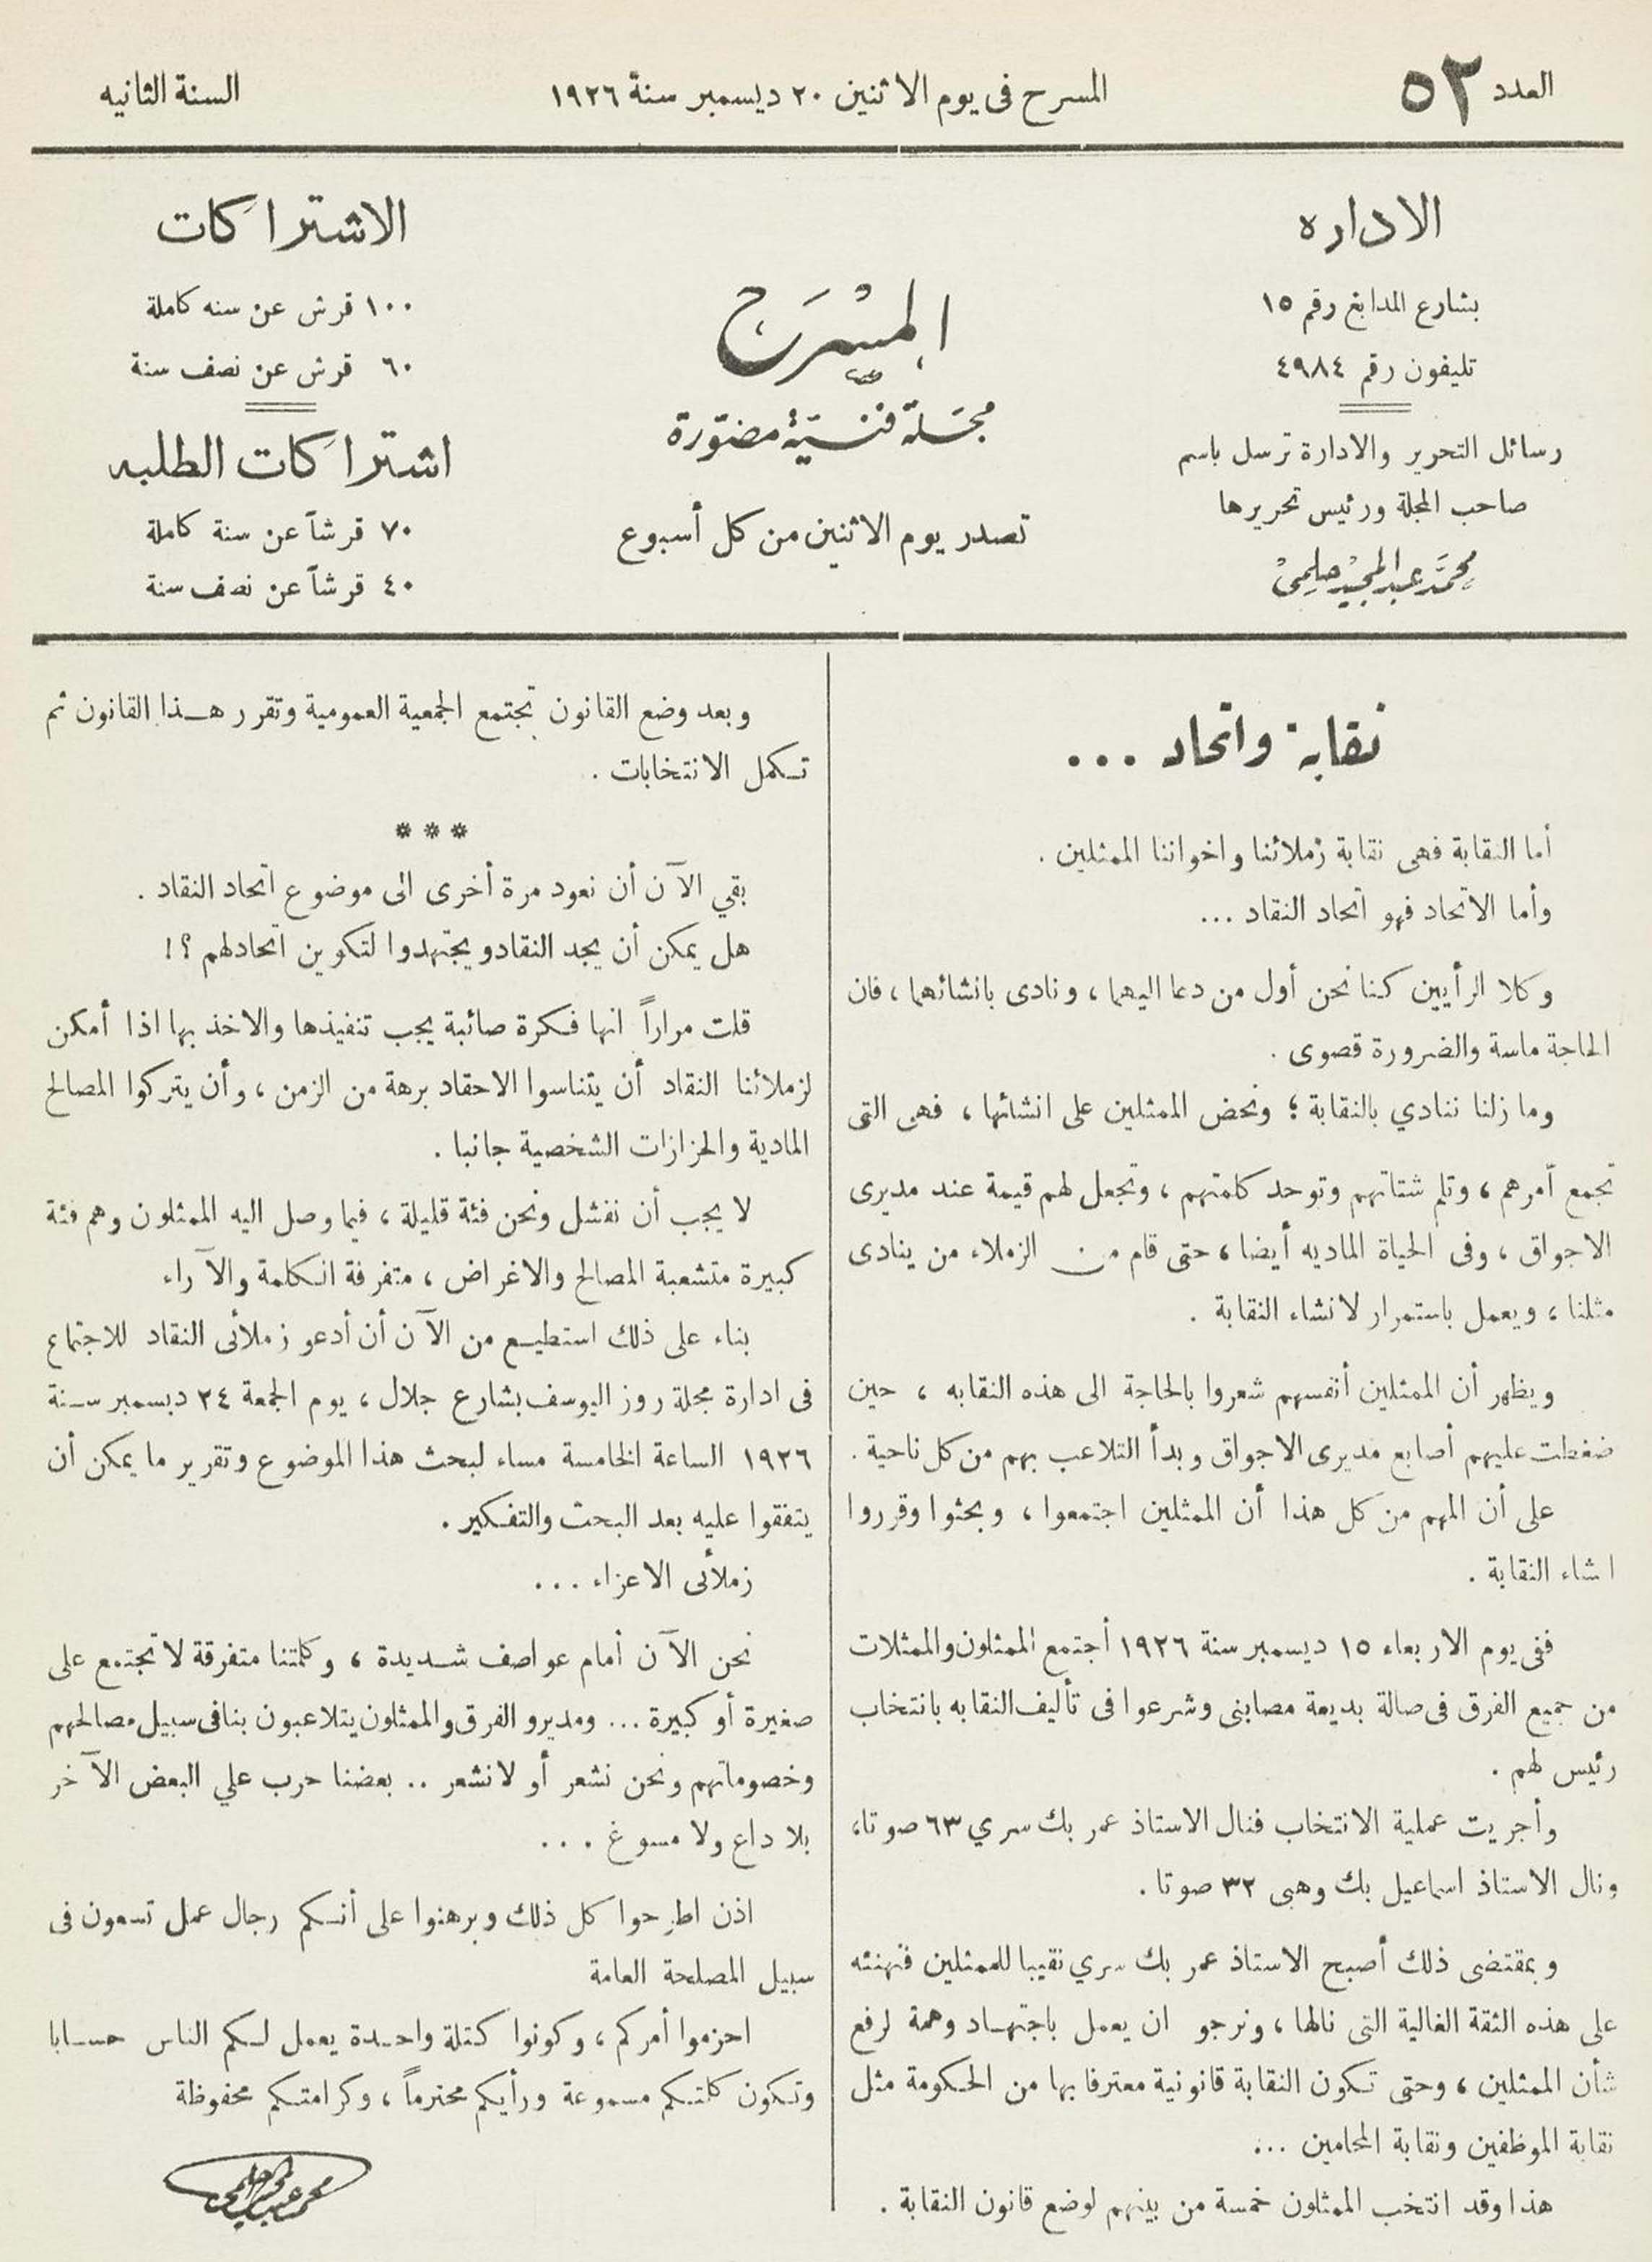 العدد ٥٢
المسرح فى يوم الاثنين ٢٠ ديسمبر سنة ١٩٢٦
السنة الثانيه
الاداره
بشارع المدابغ رقم ١٥
تليفون رقم ٤٩٨٤
رسائل التحرير والادارة ترسل باسم
صاحب المجلة ورئيس تحريرها
محمد عبد المجيد حلمى
المسرح
مجلة فنية مصورة
تصدر يوم الاثنين من كل أسبوع
الاشتراكات
١٠٠ قرش عن سنه كاملة
٦٠ قرش عن نصف سنة
اشتراكات الطلبه
٧٠ قرشاً عن سنة كاملة
٤٠ قرشاً عن نصف سنة
نقابة واتحاد ...
أما النقابة فهى نقابة زملائنا واخواننا الممثلين .
وأما الاتحاد فهو اتحاد النقاد ...
وكلا الرأيين كنا نحن أول من دعا اليهما ، ونادى بانشائهما ، فان
الحاجة ماسة والضرورة قصوى .
وما زلنا ننادي بالنقابة ؛ ونحض الممثلين على انشائها ، فهى التى
تجمع أمرهم ، وتلم شتاتهم وتوحد كلمتهم ، وتجعل لهم قيمة عند مديرى
الاجواق ، وفى الحياة الماديه أيضا ، حتى قام من الزملاء من ينادى
مثلنا ، ويعمل باستمرار لانشاء النقابة .
ويظهر أن الممثلين أنفسهم شعروا بالحاجة الى هذه النقابه ، حين
ضغطت عليهم أصابع مديرى الاجواق وبدأ التلاعب بهم من كل ناحية .
على أن المهم من كل هذا أن الممثلين اجتمعوا ، وبحثوا وقرروا
اشاء النقابة .
ففى يوم الاربعاء ١٥ ديسمبر سنة ١٩٢٦ أجتمع الممثلون والممثلات
من جميع الفرق فى صالة بديعة مصابنى وشرعوا فى تأليف النقابه بانتخاب
رئيس لهم .
وأجريت عملية الانتخاب فنال الاستاذ عمر بك سري ٦٣ صوتا،
ونال الاستاذ اسماعيل بك وهبى ٣٢ صوتا .
وبمقتضى ذلك أصبح الاستاذ عمر بك سري نقيبا للممثلين فنهنئه
على هذه الثقة الغالية التى نالها ، ونرجو ان يعمل باجتهاد وهمة لرفع
شأن الممثلين ، وحتى تكون النقابة قانونية معترفا بها من الحكومة مثل
نقابة الموظفين ونقابة المحامين ...
هذا وقد انتخب الممثلون خمسة من بينهم لوضع قانون النقابة .
وبعد وضع القانون تجتمع الجمعية العمومية وتقرر هذا القانون ثم
تكمل الانتخابات .
***
بقي الآن أن نعود مرة أخرى الى موضوع اتحاد النقاد .
هل يمكن أن يجد النقادو يجتهدوا لتكوين اتحادلهم ؟!
قلت مراراً انها فكرة صائبة يجب تنفيذها والاخذ بها اذا أمكن
لزملائنا النقاد أن يتناسوا الاحقاد برهة من الزمن ، وأن يتركوا المصالح
المادية والحزازات الشخصية جانبا .
لا يجب أن نفشل ونحن فئة قليلة ، فيما وصل اليه الممثلون وهم فئة
كبيرة متشعبة المصالح والاغراض ، متفرفة الكلمة والآراء
بناء على ذلك استطيع من الآن أن أدعو زملائى النقاد للاجتماع
فى ادارة مجلة روز اليوسف بشارع جلال ، يوم الجمعة ٢٤ ديسمبر سنة
١٩٢٦ الساعة الخامسة مساء لبحث هذا الموضوع وتقرير ما يمكن أن
يتفقوا عليه بعد البحث والتفكير .
زملأئى الاعزاء ...
نحن الآن أمام عواصف شديدة ، وكلمتنا متفرقة لا تجتمع على
صغيرة أو كبيرة ... ومديرو الفرق والممثلون يتلاعبون بنافى سبيل مصالحهم
وخصوماتهم ونحن نشعر أو لا نشعر .. بعضنا حرب علي البعض الآخر
بلا داع ولا مسوغ ...
اذن اطرحوا كل ذلك وبرهنوا على أنكم رجال عمل تسعون فى
سبيل المصلحة العامة
احزموا أمركم ، وكونوا كتلة واحدة يعمل لكم الناس حسابا
وتكون كلمتكم مسموعة ورأيكم محترماً ، وكرامتكم محفوظة
محمد عبد المجيد حلمى